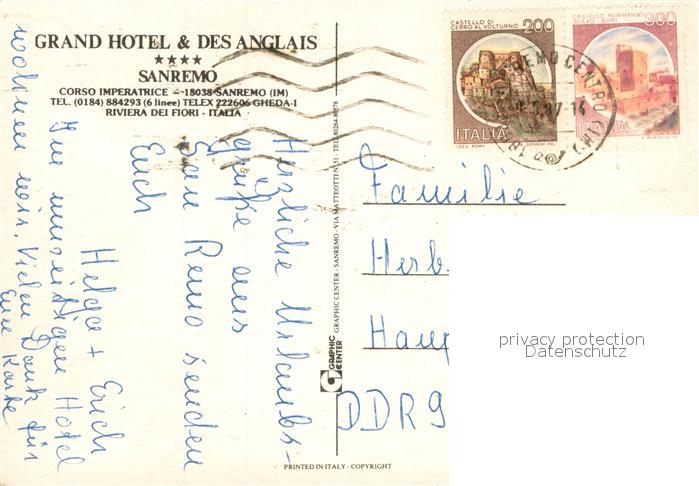 GRAND HOTEL & DES ANGLAIS
★★★★
SANREMO
CORSO IMPERATRICE - 18038 SANREMO (IM)
TEL. (0184) 884293 (6 linee) TELEX 222606 GHEDA-I
RIVIERA DEI FIORI - ITALIA
CASTELLO DI
CERRO AL VOLTURNO
200
ITALIA
CASTELLO NORMANNO
SVEVO BARI
300
ITALIA
REMO CENTRO
Herzliche Urlaubs-
grüße aus
San Remo senden
Erich
Helga + Erich
Im unseitigen Hotel
wohnen wir. Vielen Dank für
Eure Karte
Familie
Herb.
Haup
DDR 9
GRAPHIC CENTER - SANREMO - VIA MATTEOTTI
GRAPHIC
CENTER
PRINTED IN ITALY - COPYRIGHT
privacy protection
Datenschutz